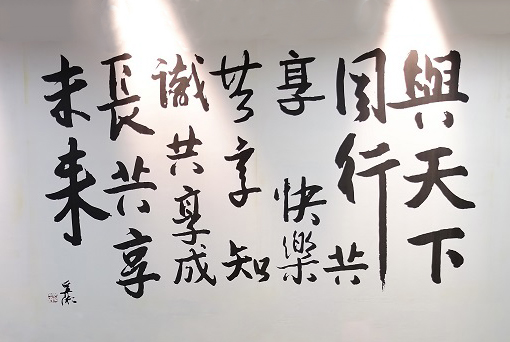 與天下
同行共
享快樂
共享知
識共享成
長共享
未来